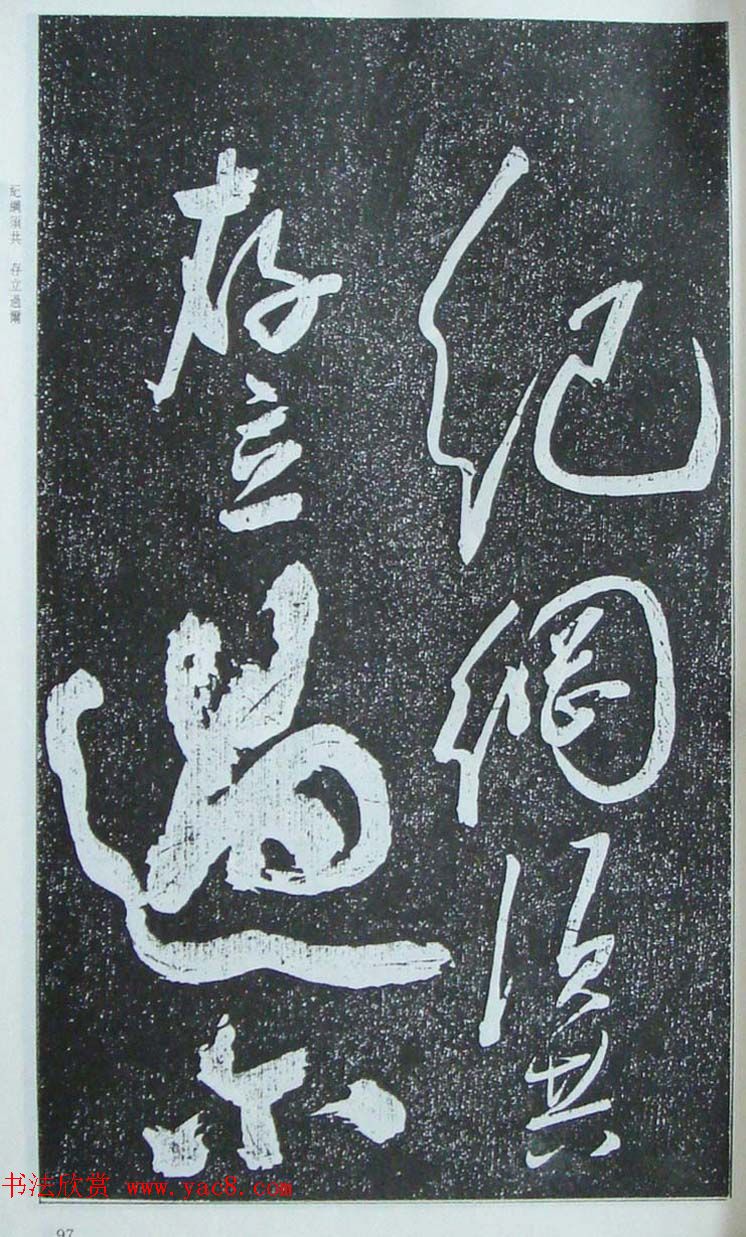 紀綱須共
存立過尔
紀綱須共 存立過爾
书法欣赏 www.yac8.com
97